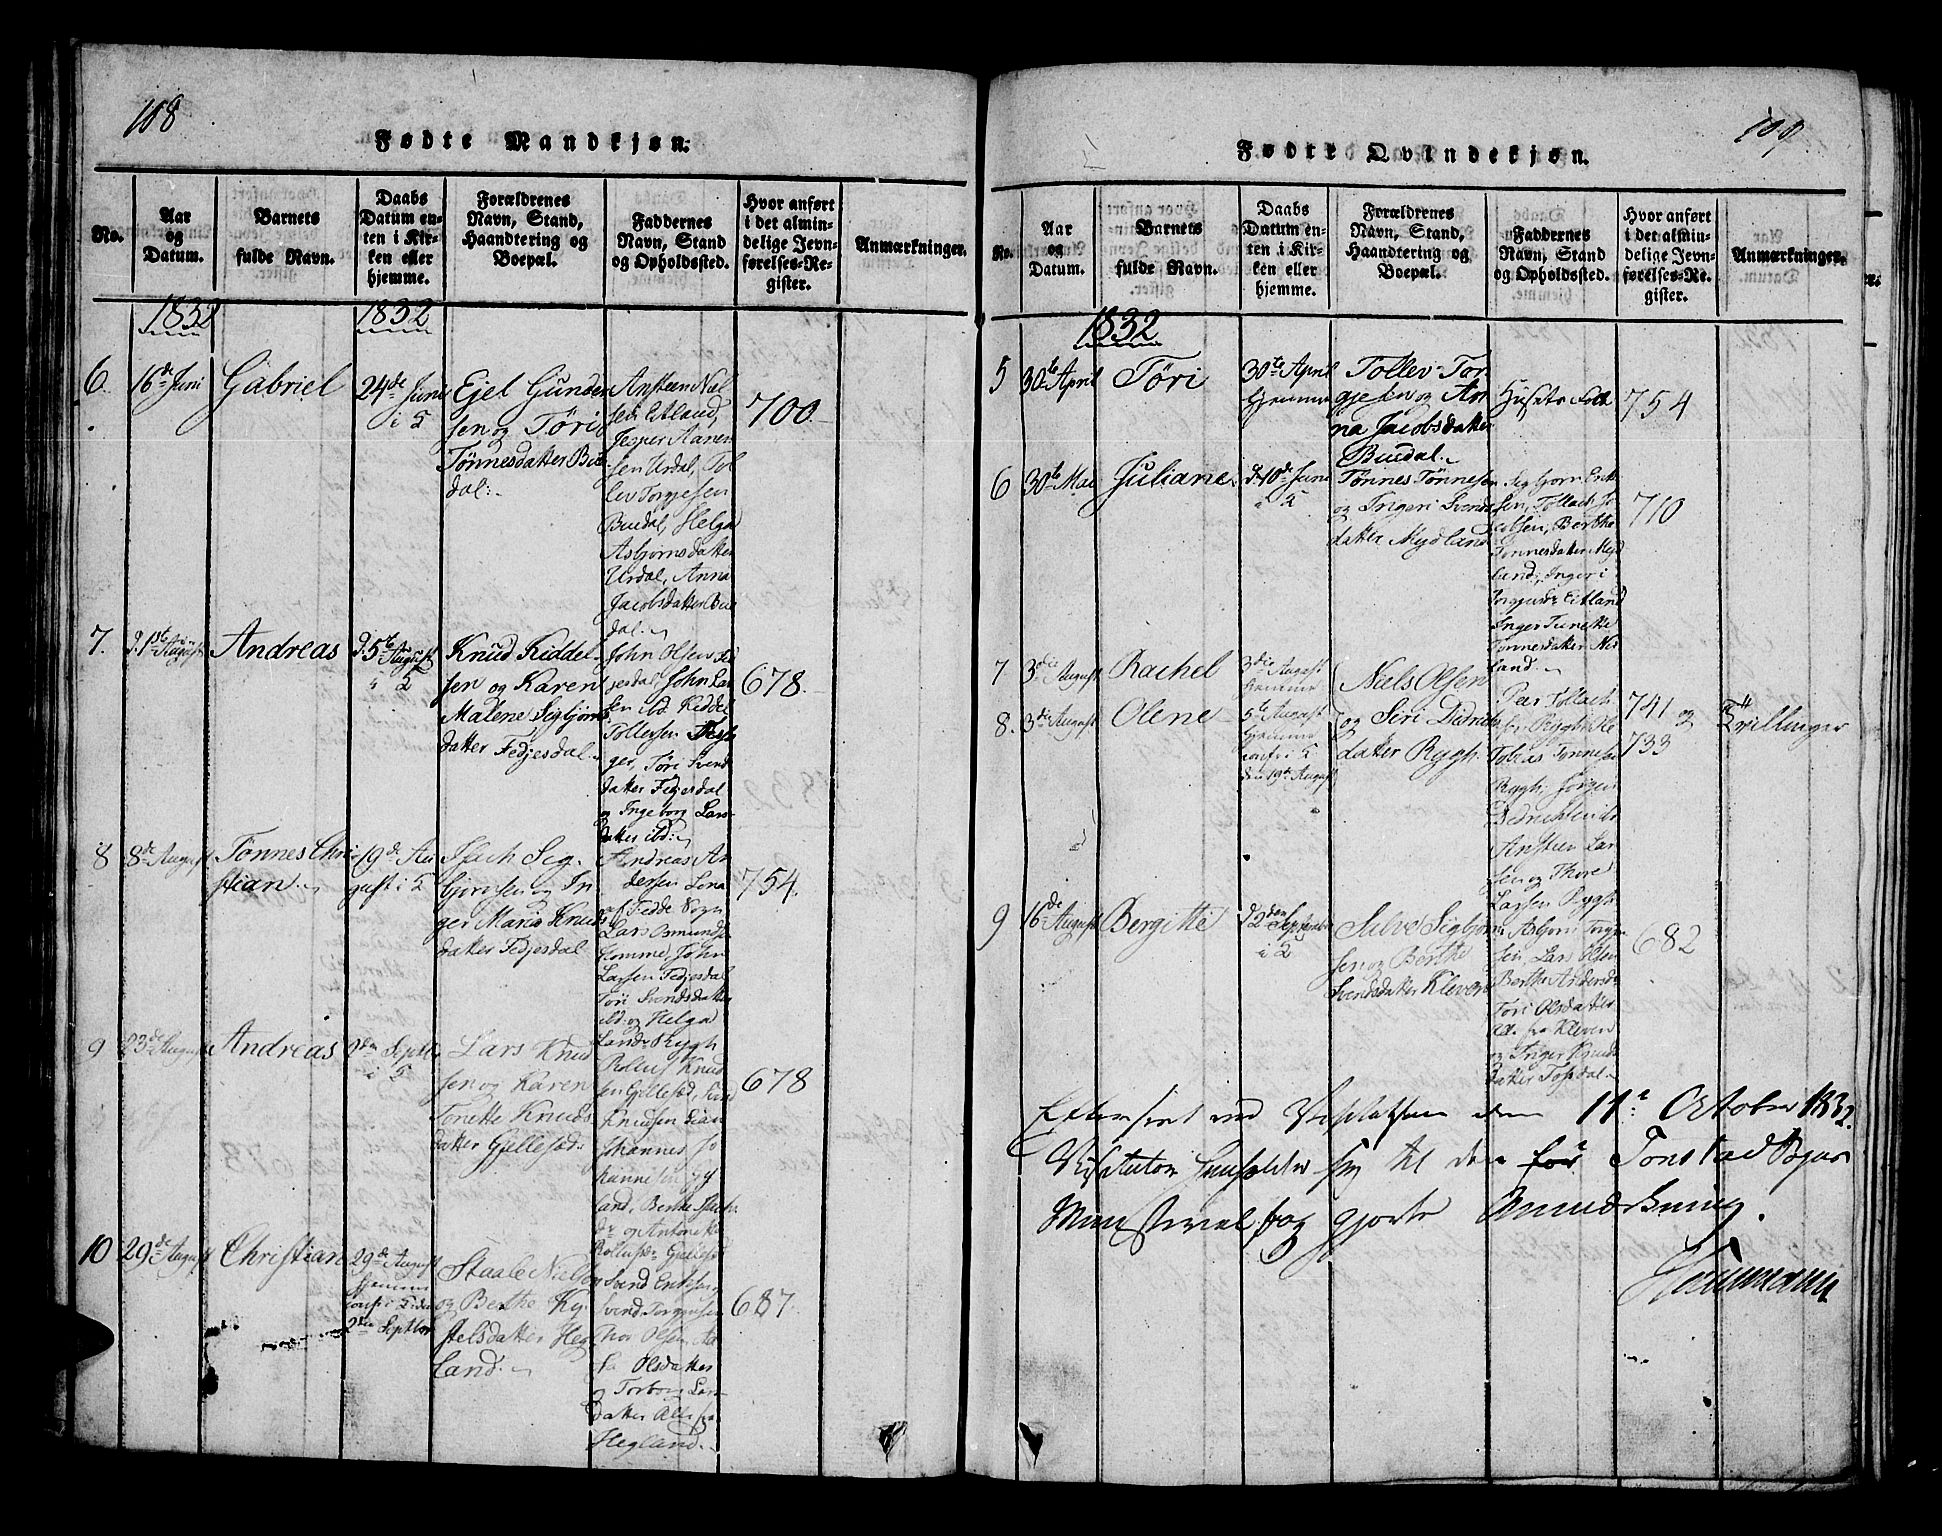 108
Fødte Mandkjøn.
No.
Aar
og
Datum.
Barnets
fulde Navn.
Daabs
Datum en-
ten i Kir-
ken eller
hjemme.
Forældrenes
Navn, Stand,
Haandtering og
Boepæl.
Faddernes
Navn, Stand
og Opholdssted.
Hvor anført
i det almin-
delige Jevn-
førelses-Re-
gister.
Anmærkninger.
1832
1832
6.
16de Juni
Gabriel
24de Juni
i 5
Ejel Gunder
sen og Töri
Tönnesdatter Bue
dal.
Ansteen Nal
Eitland,
Jesper Aanen
sen Urdal, Tol
lev Torgjesen
Buedal, Helga
Asbjornsdatter
Urdal, Anna
Jacobsdatter Bue
dal.
700.
7.
d. 1ste August
Andreas
d. 5te August
i 5
Knud Kiddel
sen og Karen
Malene Sigbjörns
datter Fedjesdal.
John Olsen Fed
jesdal, John Lar
sen ibd. Kiddel
Tollefsen
ger, Töri Svend
datter Fedjesdal
og Ingeborg Lars-
datter ibd.
678.
8
8de August
Tönnes Chri
stian.
19de Au
gust i 5
Isach Sig
bjornsen og In
ger Maria Knuds
datter Fedjesdal
Andreas An
dersen Lena
af Fedde Sogn
Lars Osmunds
Glomme, John
Larsen Fedjesdal
Töri Svendsdatter
ibd. og Helga
754.
9
23de August
Andreas
2den Septbr
i 5
Lars Knud
sen og Karen
Tonette Knuds
datter Gjellesød.
Rollus Knud
sen Gjellesød, Svend
Knudsen Eian
Johannes Jo
hannesen Ry
land, Berthe Isach
dr og Antonette
Rollusdr Gjellesød
678
10
29de August
Christian
29de August
hjemme
conf. i Feda
2den Septbr
Staale Nielsen
og Berthe Ky-
stelsdatter Heg
land.
Svend Eriksen,
Svend Torgjusen
Thor Olsen, Aa
sa Olsdatter
og Torborg Lars-
datter Alle fra
Hegland.
687.
109
Fødte Qvindekjøn.
No.
Aar
og
Datum.
Barnets
fulde Navn.
Daabs
Datum en-
ten i Kir-
ken eller
hjemme.
Forældrenes
Navn, Stand,
Haandtering og
Boepæl.
Faddernes
Navn, Stand
og Opholdssted.
Hvor anført
i det almin-
delige Jevn-
førelses-Re-
gister.
Anmærkninger.
1832
5
30te April
Töri
30te April
hjemme
Tollev Tor
gjesen og An
na Jacobsdatter
Buedal.
Husets Folk
754
6
30te Mai
Juliane
d. 10de Juni
i 5
Tönnes Tönnesen
og Ingeri Svends
datter Mydland
Sigbjorn Erik
sen, Tollach Ja
cobsen, Berthe
Tönnesdatter Myd
land, Ingeri
Torgjusdr Eitland
Inger Tunette
Tönnesdatter Ner
land.
710
7
3die August
Rachel
3die August
hjemme
Niels Olsen
8.
3die August
Olene
5te August
hjemme
conf. i 5
den 19de August
og Siri Didrich
datter Rygh.
Peer Tollach
sen Rygh,
Tobias Tönnesen
Rygh, Jörgen
Ansteen Lar
sen og Thore
Larsen Rygh
741 og
733
Tvillinger
9
16de August
Bergitte
d. 2den September
i 2
Salve Sigbjörn
sen og Berthe
Svendsdatter Kleven
Asbjorn Torge
sen, Lars Olsen
Berthe Andersdr
Töri Olsdatter
All. fra Kleven
og Inger Knuds
datter Topdal.
682
Efterseet ved Visitatsen den 11te October 1832.
Visitator henholder sig til den for Tonstad Sogns
Ministerialbog gjorte Anmærkning.